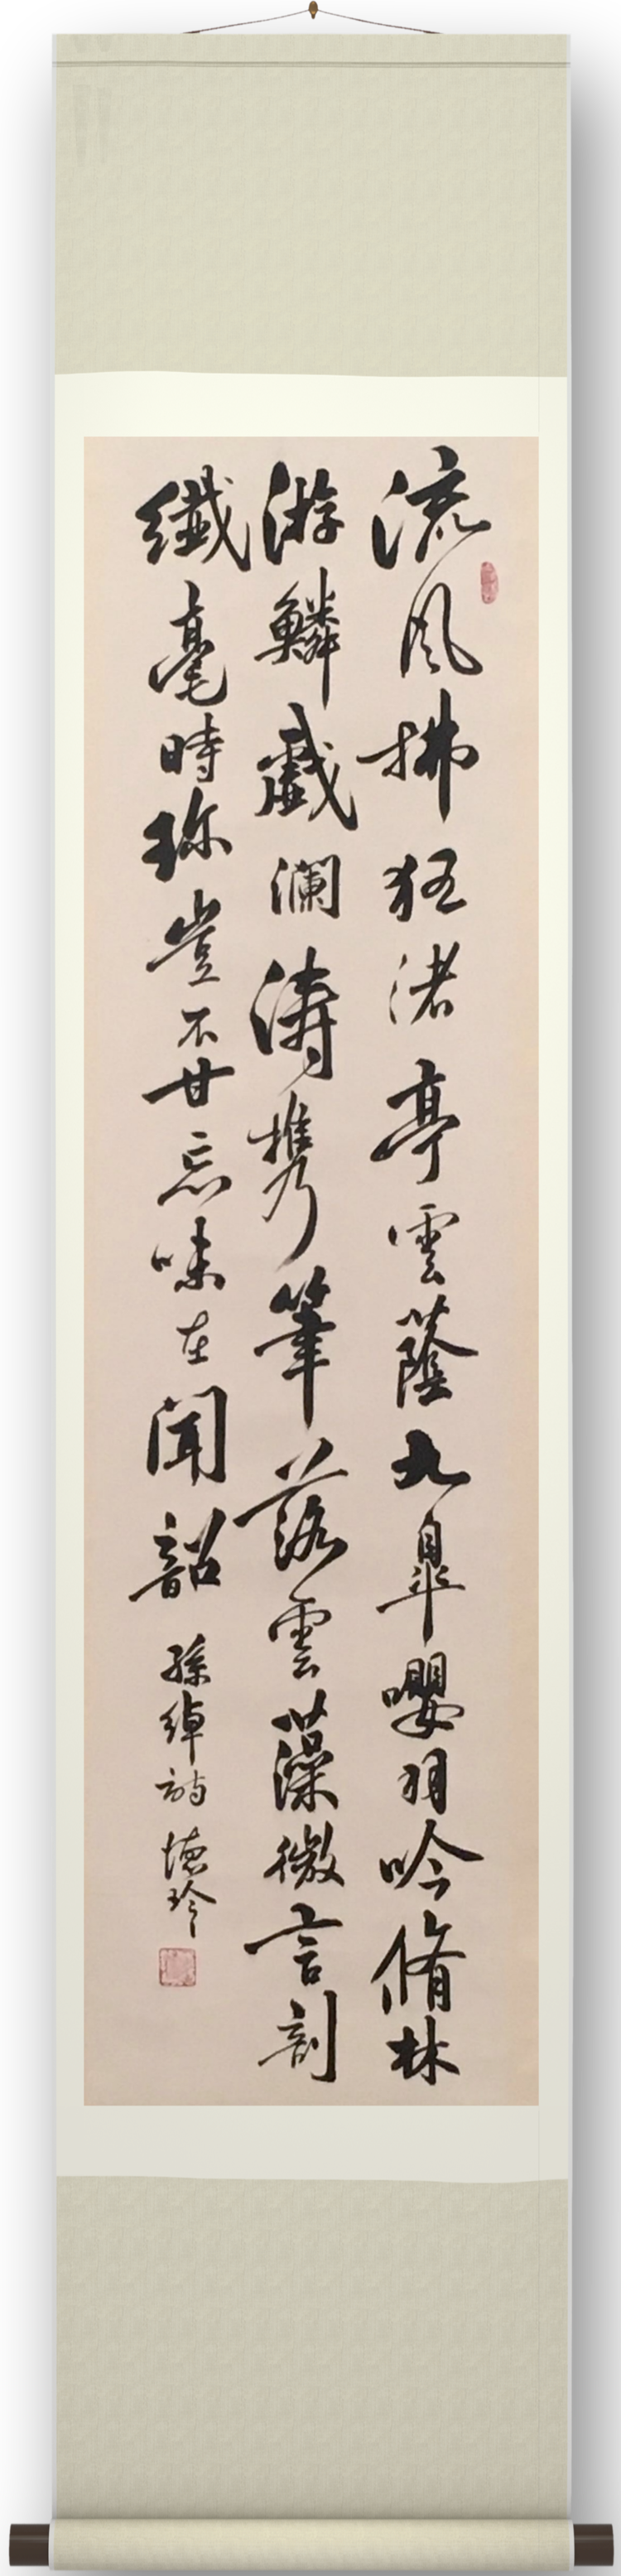 流風拂狂渚亭雲蔭九皋嚶羽吟脩林
游鱗戲瀾濤携筆落雲藻微言剖
纖毫時珍豈不甘忘味在聞韶 孫綽詩 德玲